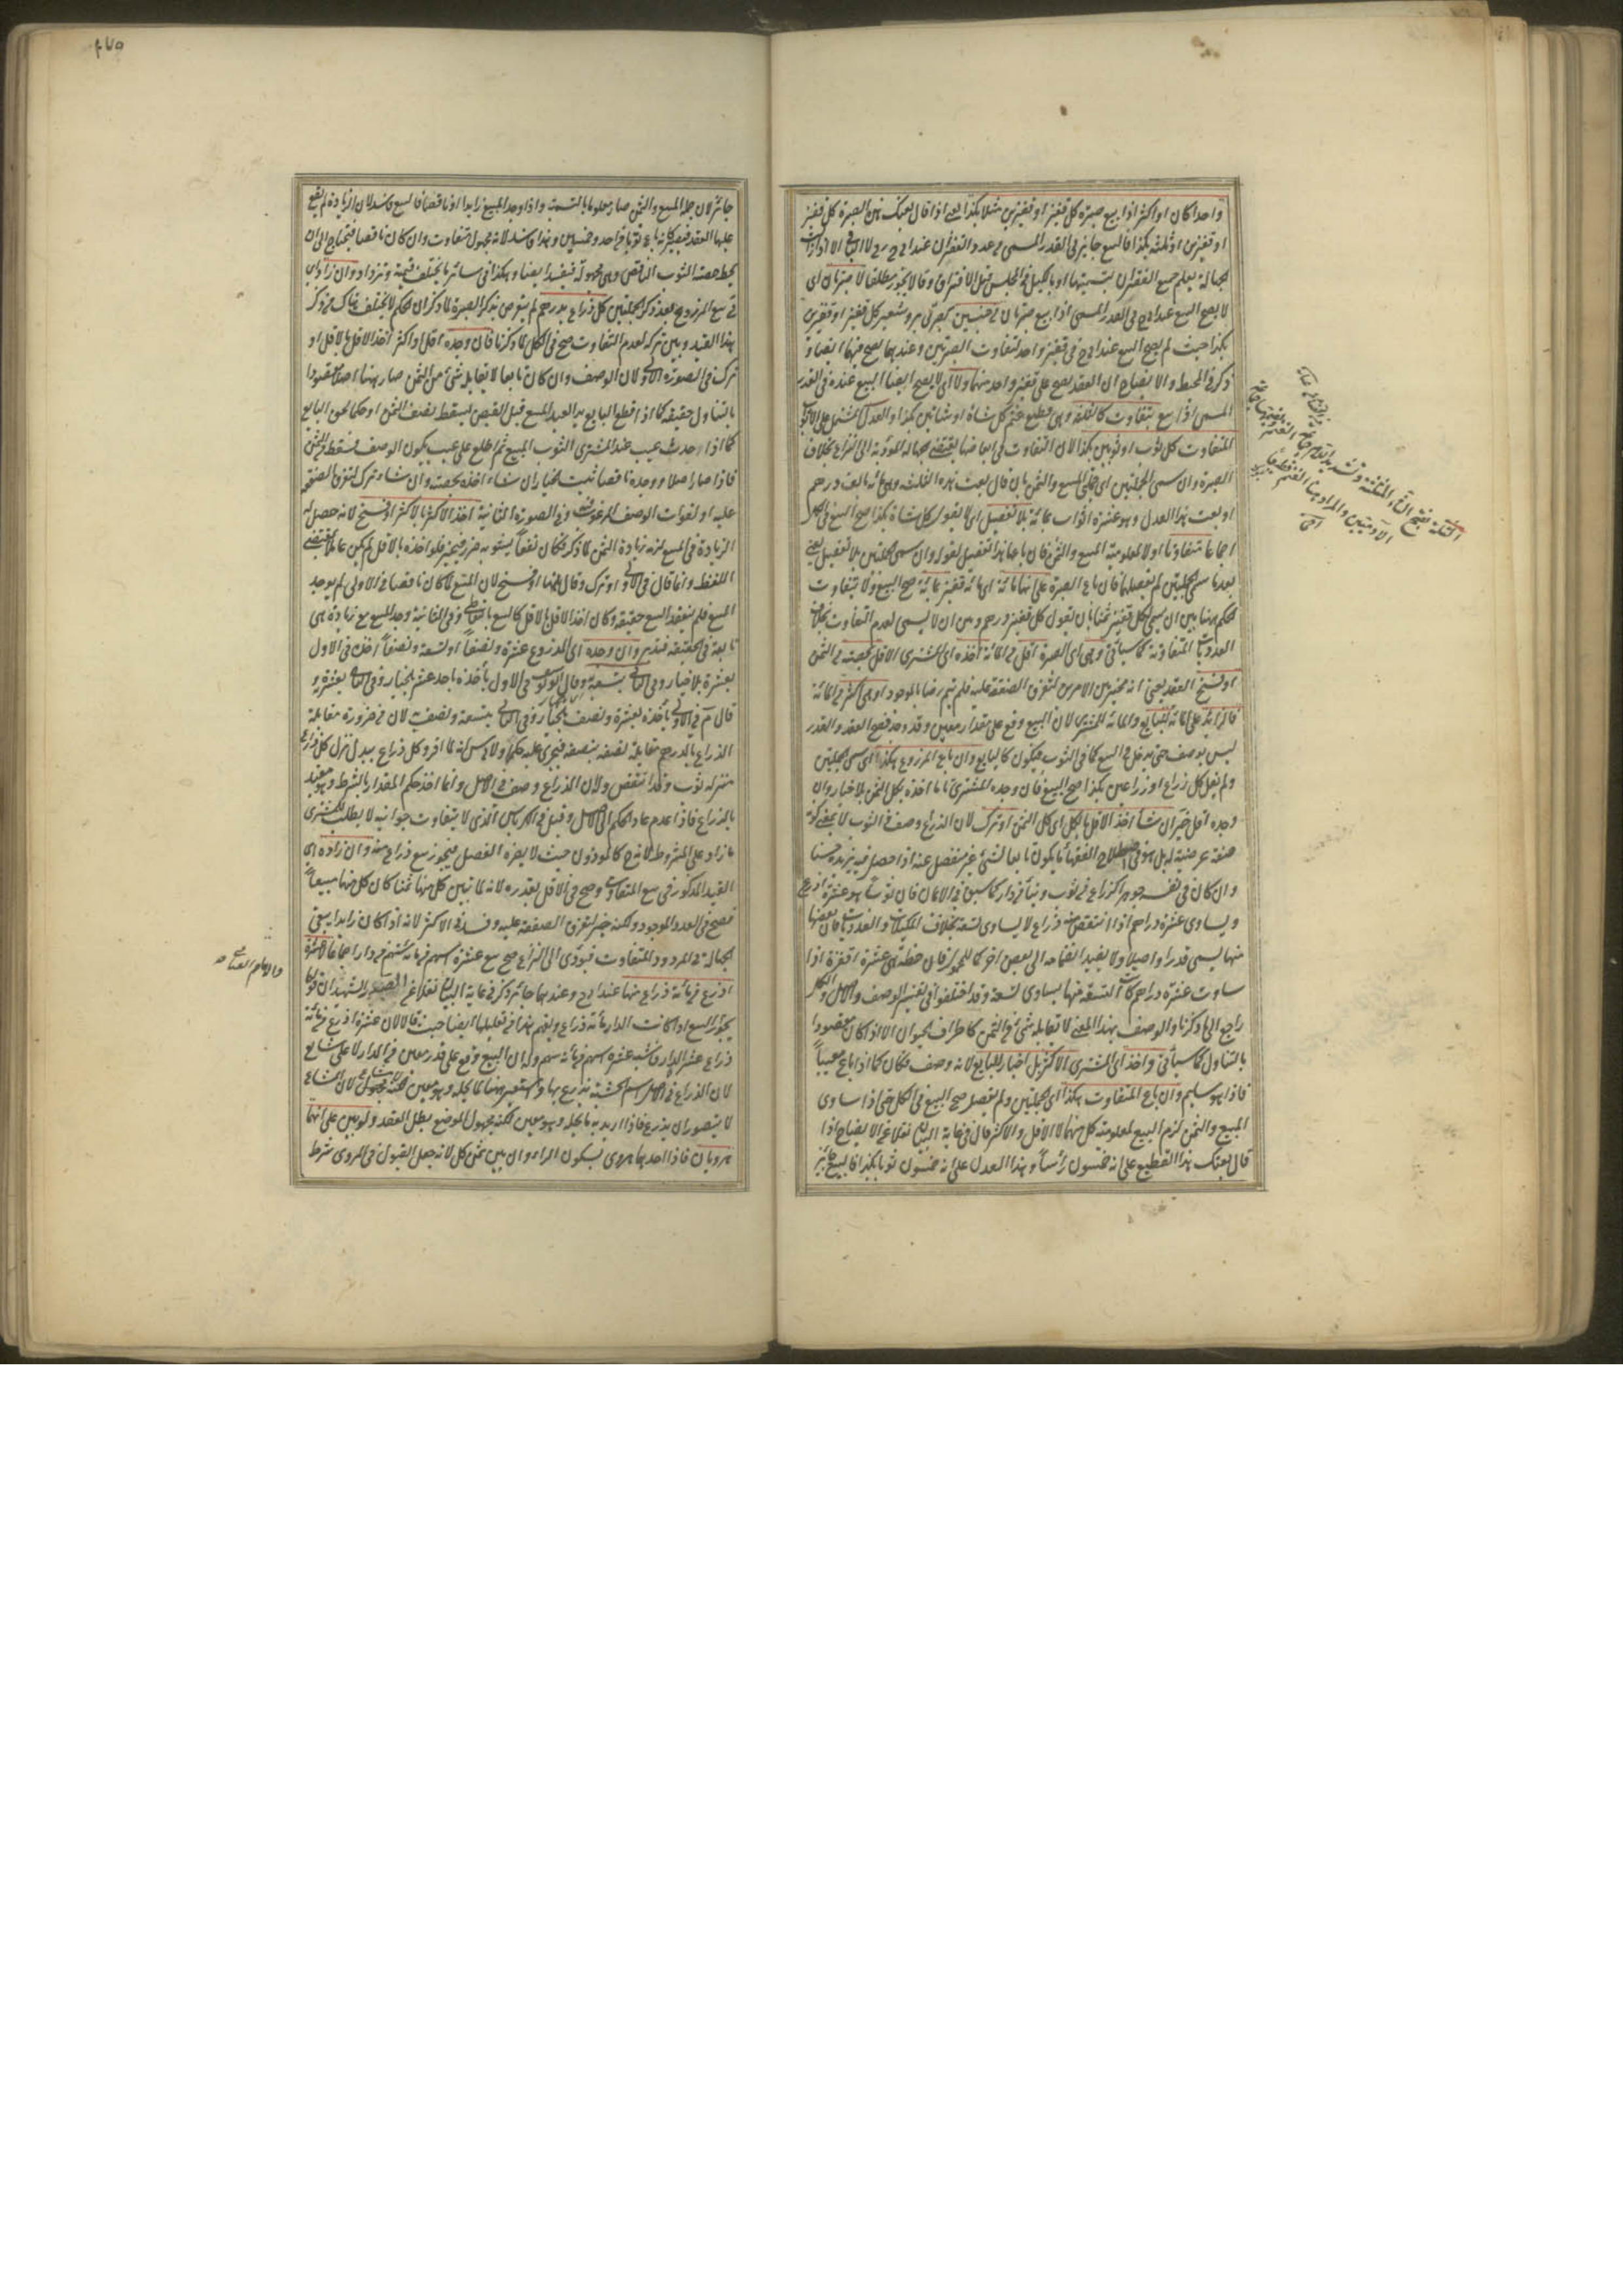 واحدا كان او اكثر اذا بيع صبرة كل قفيز او قفيزين مثلا بكذا يعنى اذا قال بعتك هذه الصبرة كل قفيز
او قفيزين او ثلثة بكذا فالبيع جايز فى القدر المسمى عدد القفزان عند
لجهالة يعلم جميع القفزان بتسميتها او بالكيل فى المجلس قبل الافتراق وقالا يجوز مطلقا
لا يصح البيع عند فى القدر المسمى اذا بيع صبرتان من جنسين كبر وشعير كل قفيز او قفيزين
بكذا حيث لم يصح البيع عند فى قفيز واحد لتفاوت الصبرتين وعندهما يصح فيهما ايضا
ذكر فى المحيط والايضاح ان العقد يصح على قفيز واحد منهما ولا اى لا يصح ايضا البيع عنده فى القدر
المسمى اذا بيع متفاوت كالثلة وهى قطيع غنم كل شاة او شاتين بكذا والعدل المشتمل على
المتفاوت كل ثوب او ثوبين بكذا لان التفاوت فى ابعاضها يقتضى جهالة المؤدية الى النزاع بخلاف
الصبرة وان سمى الجملتين اى جملتى المبيع والثمن بان قال بعت هذه الثلة وهى مائة بالف درهم
او بعت هذا العدل وهو عشرة اثواب بمائة بلا تفصيل اى لا يقول كل شاة بكذا صح البيع فى الكل
اجماعا متفاوتا او لا لمعلومية المبيع والثمن فان باع هذا التفصيل لقوله وان سمى الجملتين بلا تفصيل يعنى
بعد ما سمى الجملتين لم يفصلهما فان باع الصبرة على انها مائة اى مائة قفيز بمائة صح البيع ولا يتفاوت
الحكم ههنا بين ان يسمى لكل قفيز ثمنا بان يقول كل قفيز درهم وبين ان لا يسمى لعدم التفاوت بخلاف
العدديات المتفاوتة كما سيأتى وهى اى الصبرة اقل من المائة اخذه اى المشترى الاقل بحصته من الثمن
او فسخ العقد يعنى انه مخير بين الامرين لتفرق الصفقة عليه فلم يتم رضاه بالموجود او هى اكثر من المائة
فالزائد على المائة للبايع والمائة للمشترى لان البيع وقع على مقدار معين وقد وجد فصح العقد والقدر
ليس بوصف حتى يدخل فى البيع كما فى الثوب فيكون كالبايع وان باع المزروع هكذا اى سمى الجملتين
ولم يقل كل ذراع او ذراعين بكذا صح البيع فان وجده المشترى تاما اخذه بكل الثمن بلا خيار وان
وجده اقل خير ان شاء اخذ الاقل بالكل اى كل الثمن او ترك لان الذراع وصف فى الثوب لا يعنى كونه
صفة عرضية له بل هو فى اصطلاح الفقهاء ما يكون تابعا لشئ غير منفصل عنه اذا حصل فيه يزيده حسنا
وان كان فى نفسه جوهرا كذراع من ثوب وبناء من دار كما سبق فى الايمان فان ثوبا هو عشرة اذرع
ويساوى عشرة دراهم اذا انتقص منه ذراع لا يساوى تسعة بخلاف المكيلات والعدديات فان بعضها
منها يسمى قدرا واصلا ولا يفيد انضمامه الى بعض اخر كمالا للمجموع فان حنطة هى عشرة اقفزة اذا
ساوت عشرة دراهم كانت التسعة منها يساوى تسعة وقد اختلفوا فى تفسير الوصف والاصل والكل
راجع الى ما ذكرنا والوصف بهذا المعنى لا يقابله شئ من الثمن كاطراف الحيوان الا اذا كان مقصودا
بالتناول كما سيأتى واخذ اى المشترى الاكثر بلا خيار للبايع لانه وصف فكان كما اذا باع معيبا
فاذا هو سليم وان باع المتفاوت هكذا اى سمى الجملتين ولم يفصل صح البيع فى الكل حتى اذا ساوى
المبيع والثمن لزم البيع لمعلومية كل منهما لا الاقل والاكثر قال فى غاية البيان نقلا عن الايضاح اذا
قال بعتك هذا القطيع على انه خمسون رأسا وهذا العدل على انه خمسون ثوبا بكذا فالبيع جائز
الثلة بفتح الثاء المثلثة وتشديد اللام جماعة
الآدميين والمراد هنا
٢٧٥
جائز لان جملة المبيع والثمن صار معلوما بالتسمية واذا وجد المبيع زايدا او ناقصا فالبيع فاسد لان الزيادة لم يقع
عليها العقد فيصير كانه باع ثوبا من احد وخمسين وهذا فاسد لانه مجهول متفاوت وان كان ناقصا فيحتاج الى ان
يحط حصة الثوب الناقص وهى مجهولة فيفسد ايضا وهكذا فى سائر ما يختلف قيمته
فى بيع المزروع بعد ذكر الجملتين كل ذراع بدرهم لم يتعرض بذكر الصبرة لما ذكر ان الحكم لا يختلف هناك بين ذكر
هذا القيد وبين تركه لعدم التفاوت صح فى الكل لما ذكرنا فان وجده اقل واكثر اخذ الاقل بالاقل او
ترك فى الصورة الاولى لان الوصف وان كان تابعا لا يقابله شئ من الثمن صار ههنا اصلا مقصودا
بالتناول حقيقة كما اذا قطع البايع يد العبد المبيع قبل القبض يسقط نصف الثمن او حكما لحق البايع
كما اذا حدث عيب عند المشترى الثوب المبيع ثم اطلع على عيب يكون الوصف قسط من الثمن
فاذا صار اصلا ووجده ناقصا ثبت الخيار ان شاء اخذه بحصته وان شاء ترك لتفرق الصفقة
عليه او لفوات الوصف المرغوب وفى الصورة الثانية اخذ الاكثر بالاكثر او فسخ لانه حصل له
الزيادة فى المبيع لزمه زيادة الثمن لما ذكر فكان نفعا يشوبه ضرر فيخير فلو اخذه بالاقل لم يكن عاملا بمقتضى
اللفظ وانما قال فى الاولى او ترك وقال ههنا او فسخ لان المبيع لما كان ناقصا فى الاولى لم يوجد
المبيع فلم ينعقد البيع حقيقة وكان اخذ الاقل بالاقل كالبيع بالتعاطى وفى الثانية وجد المبيع مع زيادة هى
تابعة فى الحقيقة فتدبر وان وجده اى المذروع عشرة ونصفا او تسعة ونصفا اخذه فى الاول
بعشرة بلا خيار وفى الثانى بتسعة به وقال ابو يوسف فى الاول يأخذه باحد عشر بالخيار وفى الثانى بعشرة به
قال م فى الاولى يأخذه بعشرة ونصف بالخيار وفى الثانى بتسعة ونصف لان من ضرورة مقابلة
الذراع بالدرهم مقابلة نصفه بنصفه فيجرى عليه حكمها ولابى يوسف انه لما افرد كل ذراع ببدل نزل كل ذراع
منزلة ثوب وقد انتقص ولان الذراع وصف فى الاصل وانما اخذ حكم المقدار بالشرط وهو مقيد
بالذراع فاذا عدم عاد الحكم الى الاصل وقيل فى الكرباس الذى لا يتفاوت جوانبه لا يطلب للمشترى
ما زاد على المشروط لانه كالموزون حيث لا يضره الفصل فيجوز بيع ذراع منه وان زاده اى
القيد المذكور فى بيع المتفاوت وصح فى الاقل بقدره لانه لما تبين كل منها ثمنا كان كل منها مبيعا
فصح فى العدد الموجود ولكنه خير لتفرق الصفقة عليه وفسد فى الاكثر لانه اذا كان زايدا يبقى
الجهالة فى المردود المتفاوت فيؤدى الى النزاع صح بيع عشرة اسهم من مائة سهم من دار اجماعا لا عشرة
اذرع من مائة ذراع منها عند وعندهما جائز ذكر فى غاية البيان نقلا عن الصدر الشهيد
يجوز البيع اذا كانت الدار مائة ذراع ويفهم هذا من تعليلهما ايضا حيث قالا لان عشرة اذرع من مائة
ذراع عشر الدار فاشبه عشرة اسهم من مائة سهم وله ان البيع وقع على قدر معين من الدار لا على شايع
لان الذراع فى الاصل اسم لخشبة يذرع بها واستعير ههنا لما يحله وهو معين لكنه مجهول لان المشاع
لا يتصور ان يذرع فاذا اريد به ما يحله وهو معين لكنه مجهول الموضع بطل العقد ولو بين على انهما
هرويان فاذا احدهما مروى وان بين ثمن كل لانه جعل القبول فى المروى شرط